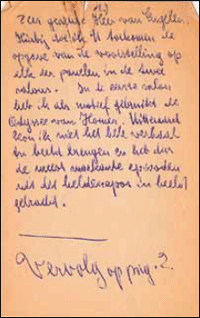 Zeer geachte Heer van Engelen,
Hierbij wil ik U toekomen de
opgave van de voorstelling op
elk der panelen in de luxe
salon. In de eerste salon
heb ik als motief gebruikt de
Odyssee van Homerus. Uitteraard
kon ik niet het hele verhaal
in beeld brengen en heb dus
de meest markante episoden
uit dit heldenepos in beeld
gebracht.
Vervolg op pag. 2.